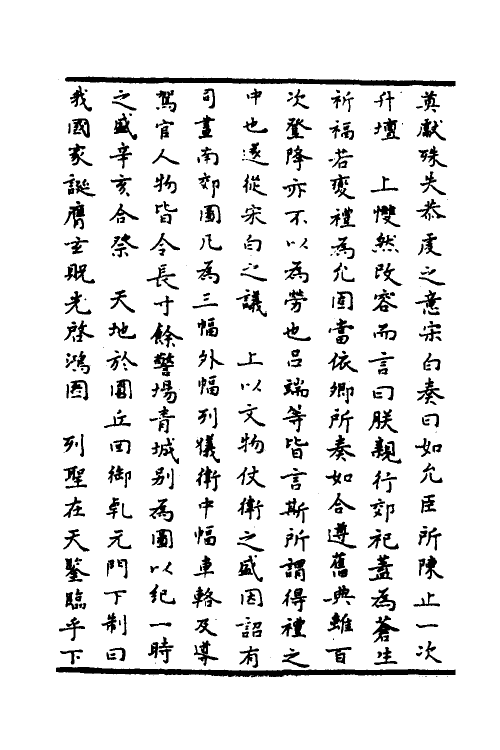 奠獻殊失恭虔之意宋白奏曰如允臣所陳止一次
升壇　上戄然改容而言曰朕親行郊祀蓋為蒼生
祈福若變禮為允固當依卿所奏如合遵舊典雖百
次登降亦不以為勞也呂端等皆言斯所謂得禮之
中也遂從宋白之議　上以文物仗衛之盛因詔有
司畫南郊圖凡為三幅外幅列獵衛中幅車輅及導
駕官人物皆令長寸餘警場青城别為圖以紀一時
之盛辛亥合祭　天地於圜丘回御乹元門下制曰
我國家誕膺玄貺光啓鴻圖　列聖在天鑒臨乎下